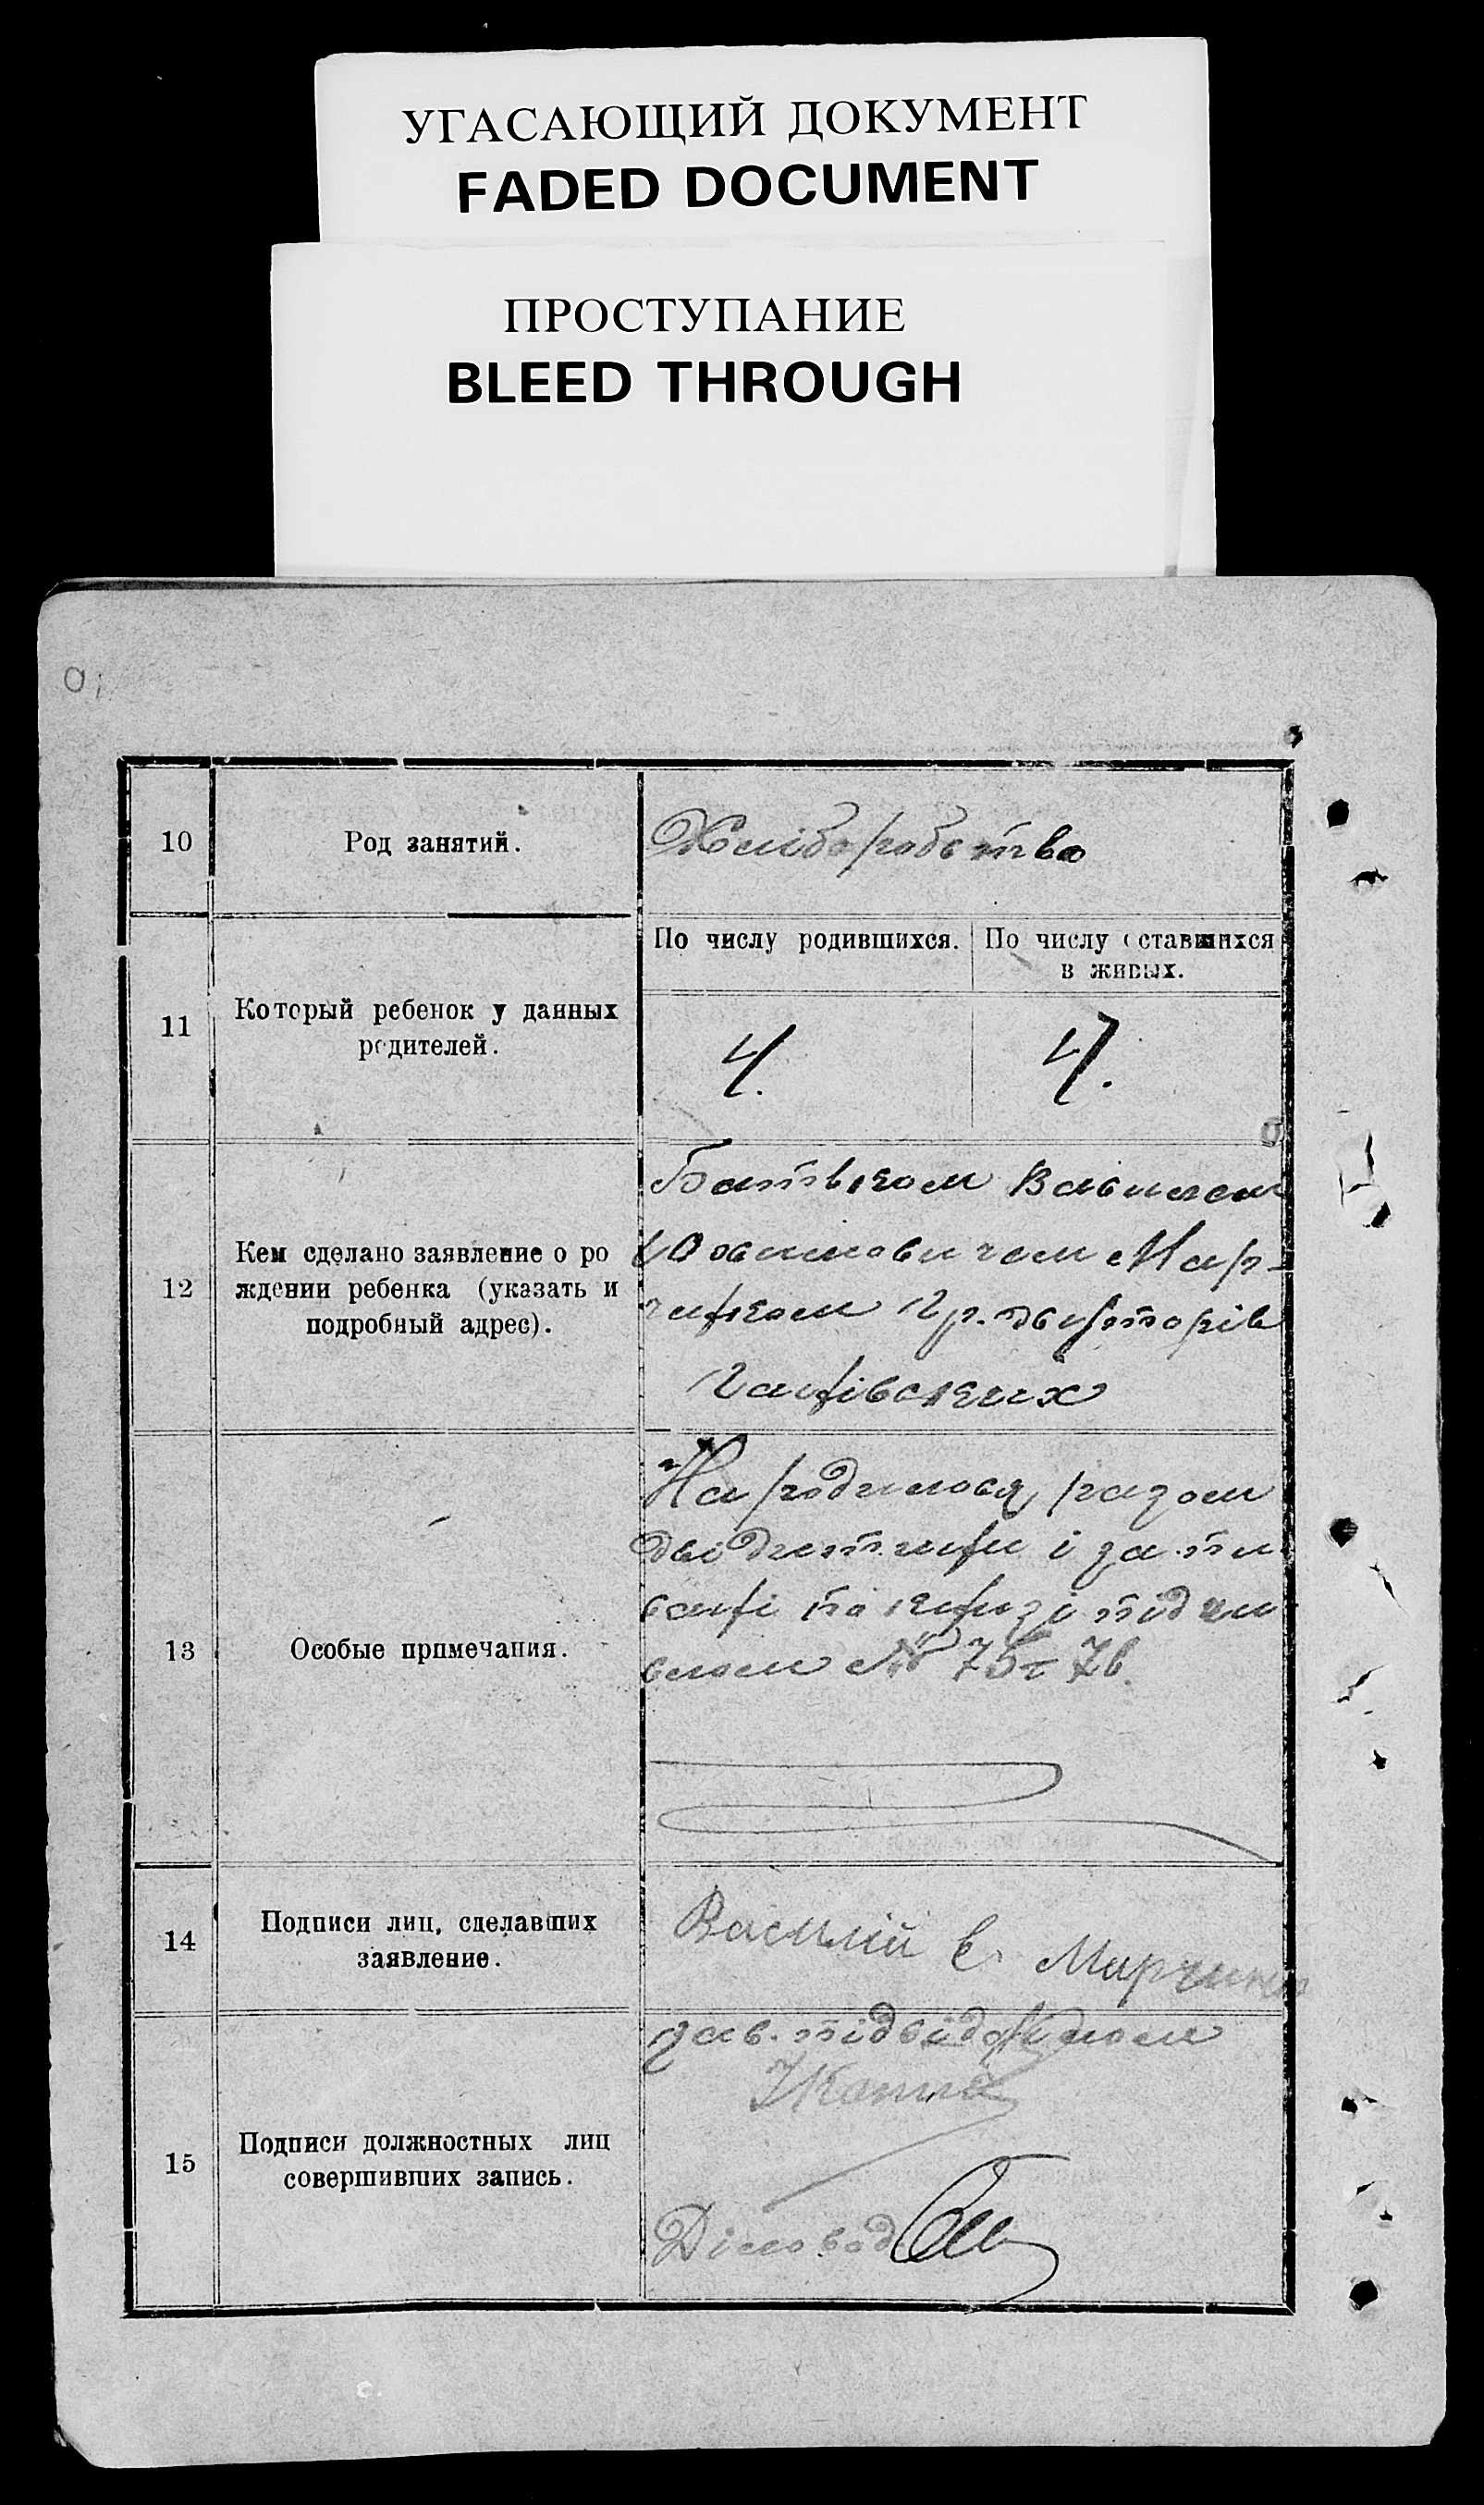 УГАСАЮЩИЙ ДОКУМЕНТ
FADED DOCUMENT
ПРОСТУПАНИЕ
BLEED THROUGH
10
Род занятий.
Хліборобство
11
Который ребенок у данных
родителей.
По числу родившихся.
По числу оставшихся
в живых.
4.
4.
12
Кем сделано заявление о ро
ждении ребенка (указать и
подробный адрес).
Батьком Василем
Мар-
чиком гр. хуторів
13
Особые примечания.
Народилося разом
дві дитини і запи
сані по книзі під чи
слом № 75 76
14
Подписи лиц, сделавших
заявление.
Василий Є. Марчик
15
Подписи должностных лиц
совершивших запись.
зав. підвідділом
Діловод